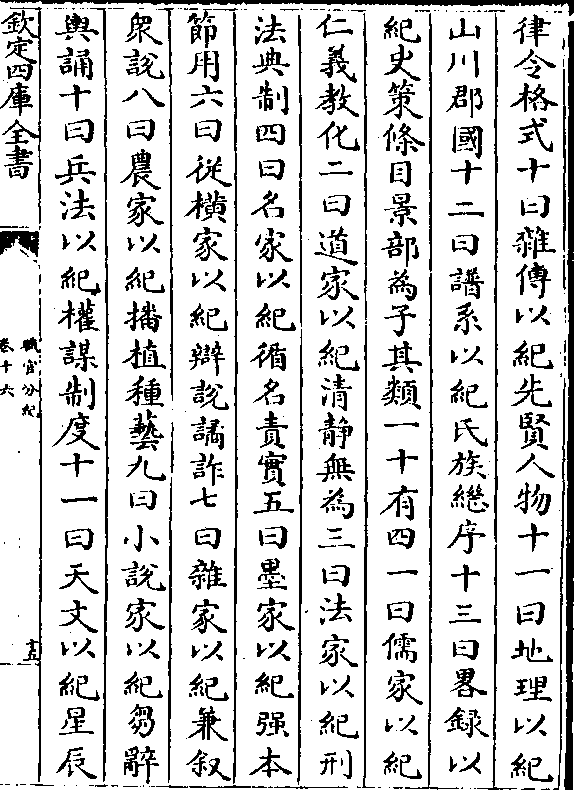 律令格式十曰雜傳以紀先賢人物十一曰地理以紀
山川郡國十二曰譜系以紀氏族繼序十三曰畧録以
紀史策條目景部為子其類一十有四一曰儒家以紀
仁義教化二曰道家以紀清靜無為三曰法家以紀刑
法典制四曰名家以紀循名責實五曰墨家以紀强本
節用六曰從横家以紀辯說譎詐七曰雜家以紀兼叙
衆說八曰農家以紀播植種藝九曰小說家以紀芻辭
輿誦十曰兵法以紀權謀制度十一曰天文以紀星辰
欽定四庫全書
職官分紀
卷十六
十五